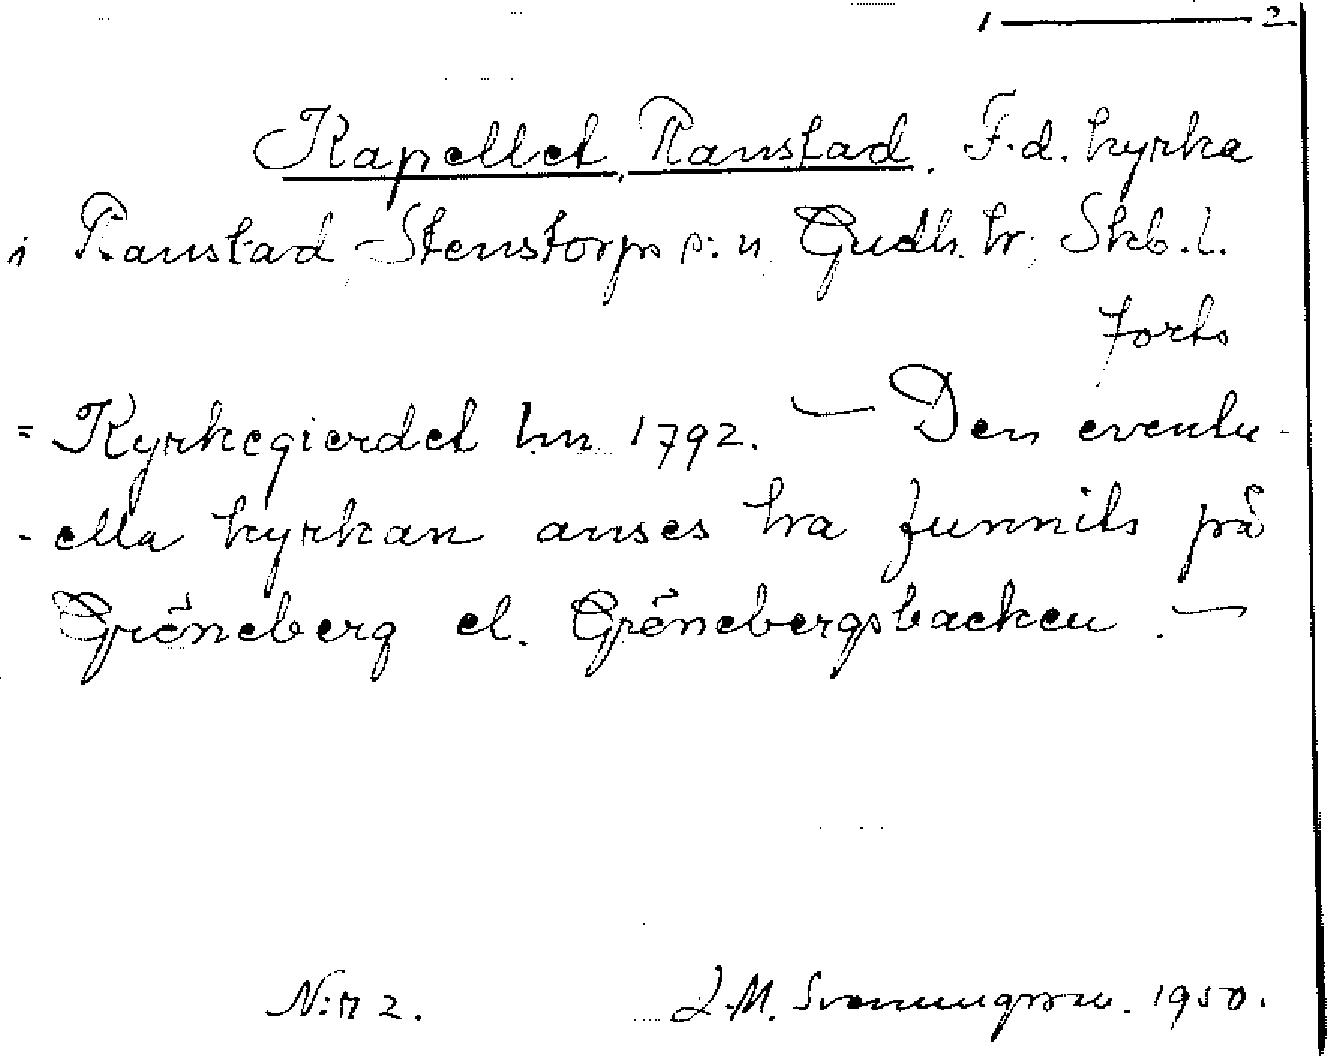 1 — 2
Kapellet, Ranstad. F.d. kyrka
i Ranstad, Stenstorps s:n Gudh. hr; Skb. l.
forts
= Kyrkegierdet hm 1792. — Den eventu-
-ella kyrkan anses ha funnits på
Gröneberg el. Grönebergsbacken. —
N:r 2. J.M. 1950.